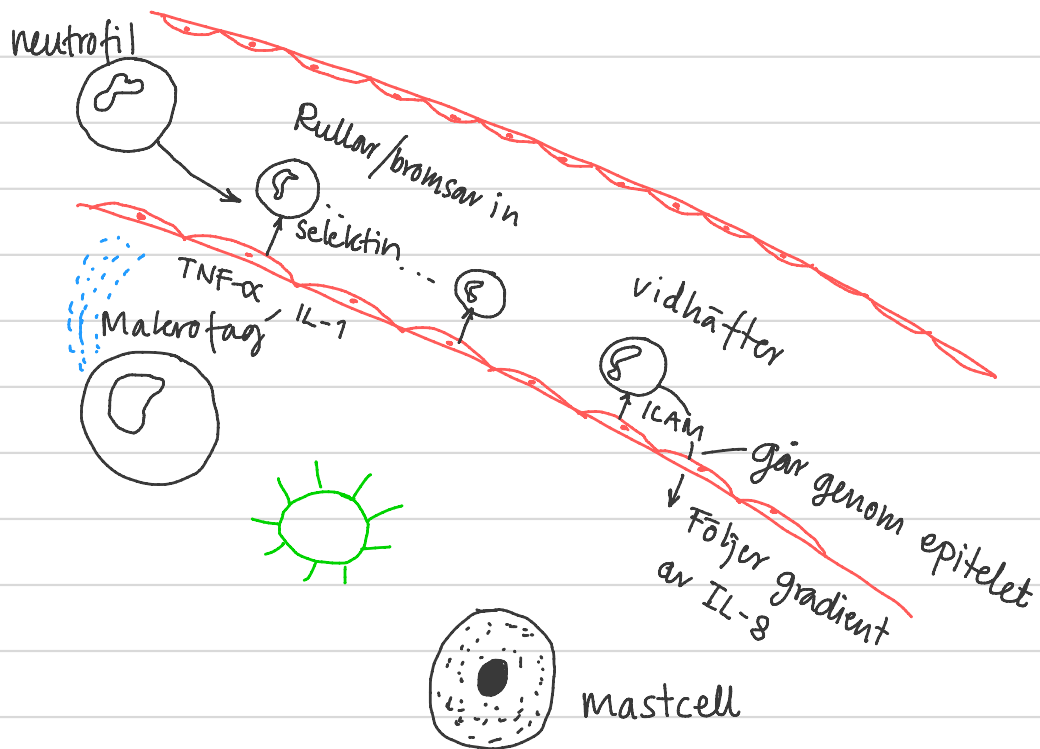 neutrofil
Rullar/bromsar in
selektin...
TNF-α
IL-1
Makrofag
vidhäfter
ICAM
går genom epitelet
Följer gradient
av IL-8
mastcell